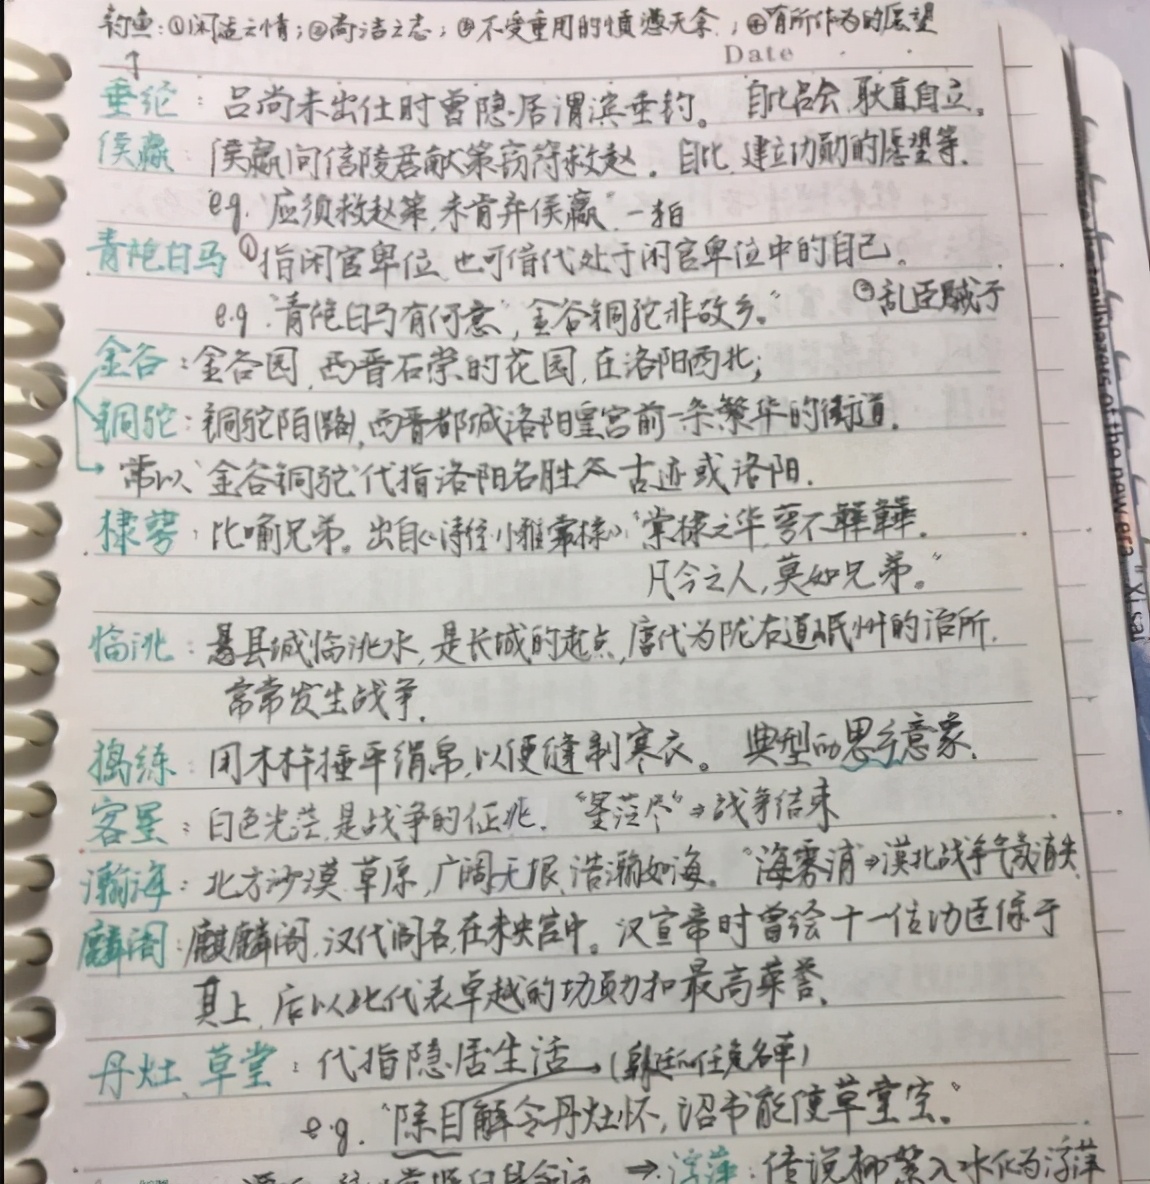 钓鱼：①闲适之情；②高洁之志；③不受重用的愤懑无奈；④有所作为的愿望
Date
垂纶：吕尚未出仕时曾隐居渭滨垂钓。自比吕尚，耿直自立。
侯嬴：侯嬴向信陵君献策窃符救赵。自比，建立功勋的愿望等.
e.g.“应须救赵策,未肯弃侯嬴”一李白
青袍白马①指闲官卑位,也可借代处于闲官卑位中的自己。
②乱臣贼子
e.g.“青袍白马有何意”,金谷铜驼非故乡。”
金谷：金谷园,西晋石崇的花园,在洛阳西北;
铜驼：铜驼陌(路),西晋都城洛阳皇宫前一条繁华的街道.
常以“金谷铜驼”代指洛阳名胜古迹或洛阳.
棣萼：比喻兄弟。出自《诗经·小雅·常棣》:“棠棣之华,萼不韡韡.
凡今之人,莫如兄弟。”
临洮：县城临洮水,是长城的起点,唐代为陇右道岷州的治所.
常常发生战争.
捣练：用木杵捶平绢帛,以便缝制寒衣。典型的思乡意象.
客星：白色光芒,是战争的征兆.“星芒尽”→战争结束
瀚海：北方沙漠草原,广阔无垠,浩瀚如海。“海雾消”→漠北战争气氛消失
麟阁：麒麟阁,汉代阁名,在未央宫中。汉宣帝时曾绘十一位功臣像于
其上,后以此代表卓越的功勋和最高荣誉.
丹灶、草堂：代指隐居生活 (朝廷的任免名单)
e.g.“除目解令丹灶怀,诏书能使草堂空。”
→浮萍：传说柳絮入水化为浮萍